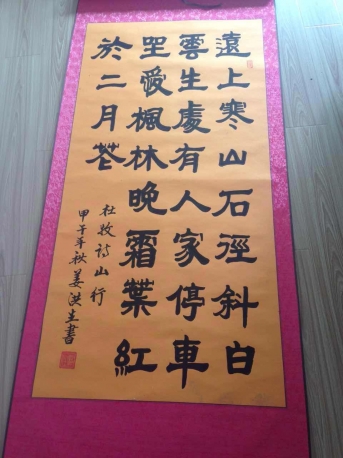 遠上寒山石徑斜白
雲生處有人家停車
坐愛楓林晚霜葉紅
於二月花
杜牧詩山行
甲午年秋姜洪生書